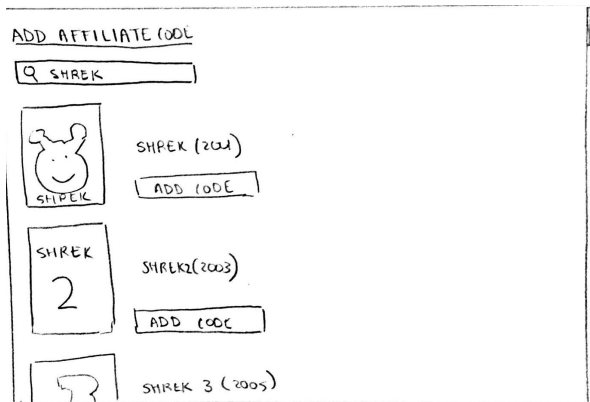 ADD AFFILIATE CODE
SHREK
SHREK
SHREK (2001)
ADD CODE
SHREK
2
SHREK2(2003)
ADD CODE
3
SHREK 3 (2005)